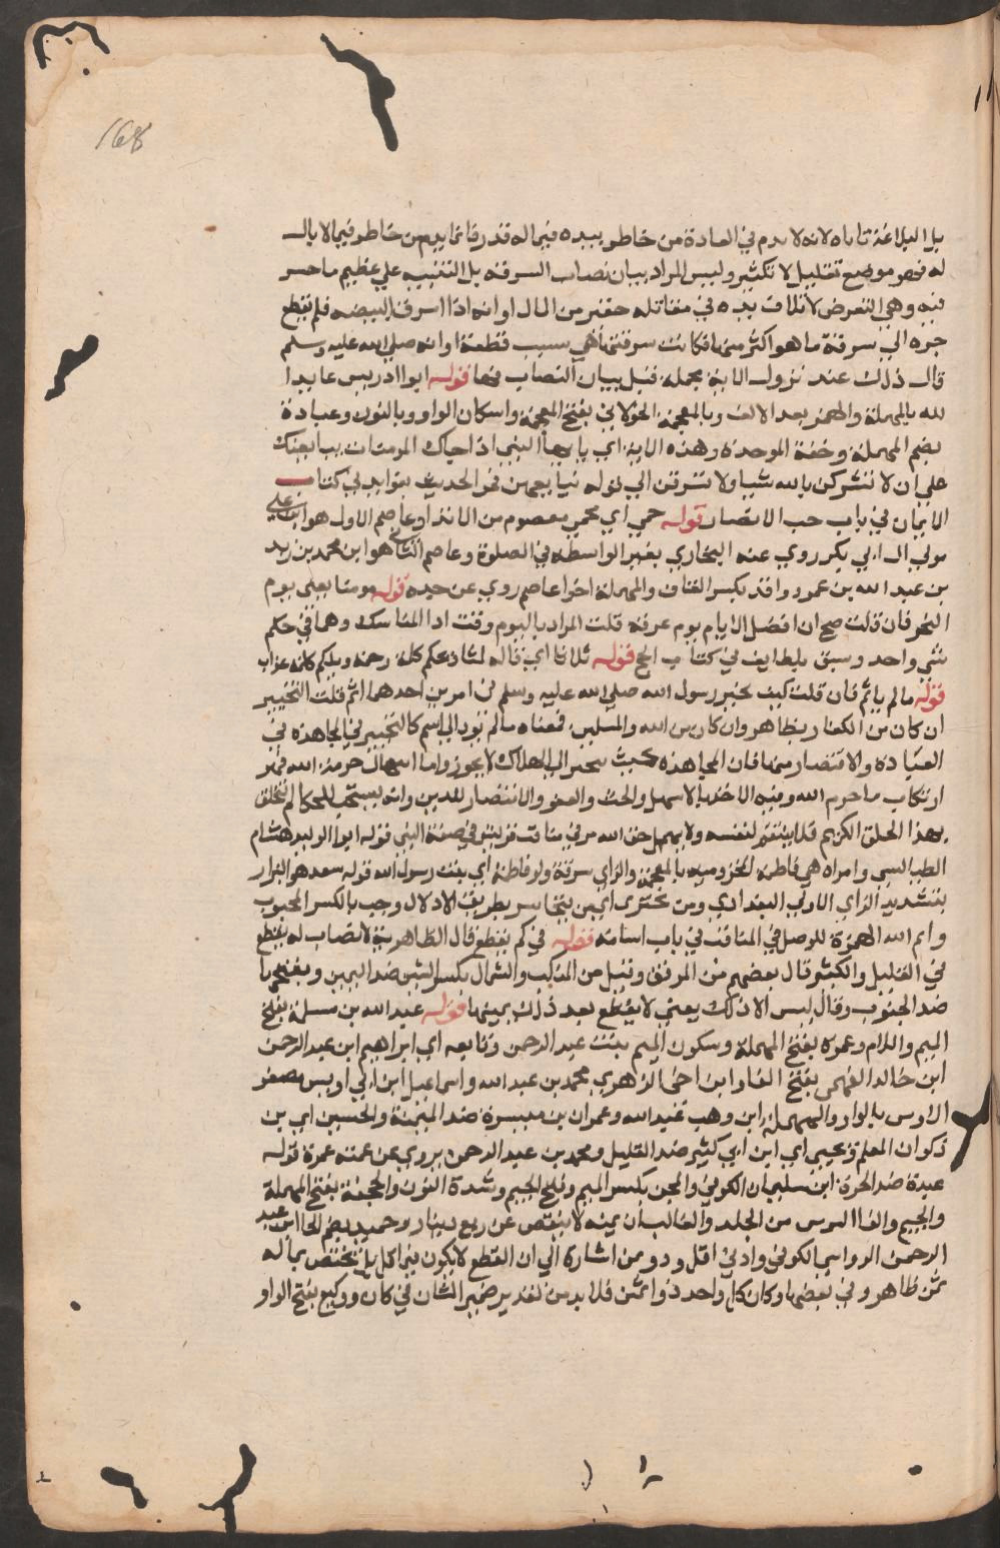 168
بل البلاغة تاباه لانه لا يذم في العادة من خاطر بيده فيما له قدر فانما يذم من خاطر فيما لا بال
له فهو موضع تقليل لا تكثير وليس المراد بيان نصاب السرقة بل التنبيه علي عظيم ما خسر
فيه وهي التعرض لاتلاف يده في مقابلة حقير من المال او انه اذا اسرق البيضه فلم يقطع
جره الي سرقة ما هو اكثر منها فكانت سرقتها هي سبب قطعه او انه صلي الله عليه وسلم
قال ذلك عند نزول الاية مجملة قبل بيان النصاب فيها قوله ابوا ادريس عايد ا
لله بالمهملة والهمز بعد الالف وبالمعجمة الخولاني بفتح المعجمة واسكان الواو وبالنون وعبادة
بضم المهملة وخفة الموحدة وهذه الاية اي يا ايها النبي اذا جاك المومنات يبايعنك
علي ان لا يشركن بالله شيا ولا يسرقن الي قوله
الايمان في باب حب الانصار قوله حمي اي محمي معصوم من الايذاء وعاصم الاول هو ابن علي
مولي ال ابي بكر روي عنه البخاري بغير الواسطه في الصلوة وعاصم الثاني هو ابن محمد بن زيد
بن عبد الله بن عمر وواقد بكسر القاف والمهملة اخوا عاصم روي عن جده قوله يومنا يعني يوم
النحر فان قلت صح ان افضل الايام يوم عرفة قلت المراد باليوم وقت ادا المناسك وهما في حكم
شي واحد وسبق بلطايف في كتاب الحج قوله ثلاثا اي قاله ثلثا ويحكم كلمة رحمة وويلكم كلمة عذاب
قوله ما لم ياثم فان قلت كيف يخير رسول الله صلي الله عليه وسلم في امرين احدهما اثم قلت التخيير
ان كان من الكفار فظاهر وان كان من الله والمسلمين فمعناه ما لم يود الي اثم كالتخيير في المجاهدة في
العبادة والاقتصار منها فان المجاهدة بحيث ينجر الي الهلاك لا يجوز واما انتهاك حرمة الله فهو
ارتكاب ما حرم الله وفيه الاخذ بالاسهل والحث والعفو والانتصار للدين وانه يستحب للحكام التخلق
بهذا الخلق الكريم فلا ينتقم لنفسه ولا يهمل حق الله مر في مناقب قريش في صفة النبي قوله ابوا الوليد هشام
الطيالسي وامراه هي فاطمة المخزوميه بالمعجمة والزاي سرقة ولو فاطمة اي بنت رسول الله قوله سعد هو البزار
بتشديد الزاي الاولي البغدادي ومن يجتري اي من يتجاسر بطريق الادلال وحب بالكسر المحبوب
وايم الله الهمزة للوصل في المناقب في باب اسامة قوله في كم يقطع قال الظاهرية لا نصاب له يقطع
في القليل والكثير قال بعضهم من المرفق وقيل من المنكب والشمال بكسر الشين ضد اليمين وبفتحها
ضد الجنوب وقال ليس الا ذلك يعني لا يقطع بعد ذلك يمينها قوله عبد الله بن مسلمة بفتح
الميم واللام وعمرة بفتح المهملة وسكون الميم بنت عبد الرحمن وتابعه اي ابراهيم ابن عبد الرحمن
ابن خالد الفهمي بفتح الفا وابن اخي الزهري محمد بن عبد الله واسماعيل ابن ابي اويس مصغر
الاوس بالواو والمهملة ابن وهب عبد الله وعمران بن ميسرة ضد الميمنة والحسين اي بن
ذكوان المعلم ويحيي اي ابن ابي كثير ضد القليل ومحمد بن عبد الرحمن يروي عن عمته عمرة قوله
عبدة ضد الحرة ابن سليمان الكوفي والمجن بكسر الميم وفتح الجيم وشدة النون والحجفة بفتح المهملة
والجيم والفا الترس من الجلد والغالب ان ثمنه لا ينقص عن ربع دينار وحميد بضم الحا ابن عبد
الرحمن الرواسي الكوفي وادني اقل ودون اشارة الي ان القطع لا يكون فيما قل بل يختص بما له
ثمن ظاهر وفي بعضها وكان كل واحد ذوا ثمن فلا بد من تقدير ضمير الشان في كان ووكيع بفتح الواو